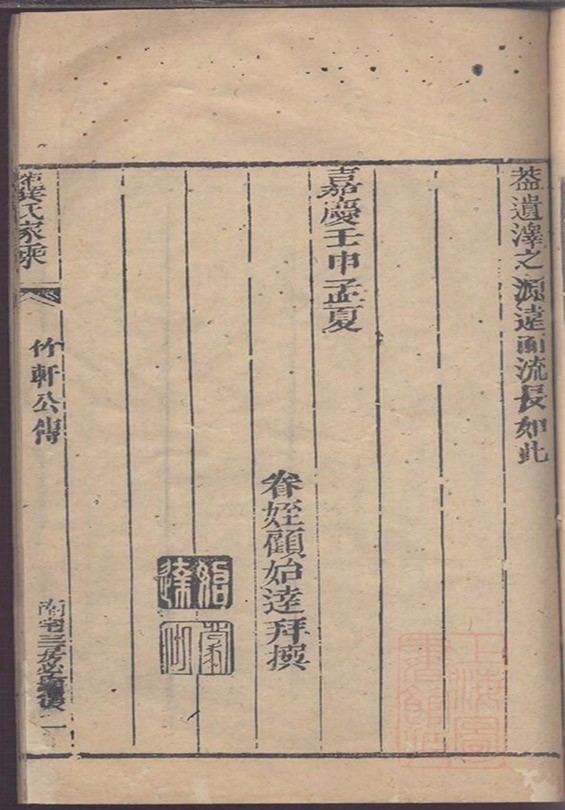 葢遺澤之源遠而流長如此
嘉慶壬申孟夏
眷姪顧始達拜撰
始達
氏家乘
竹軒公傳
南宅三房必